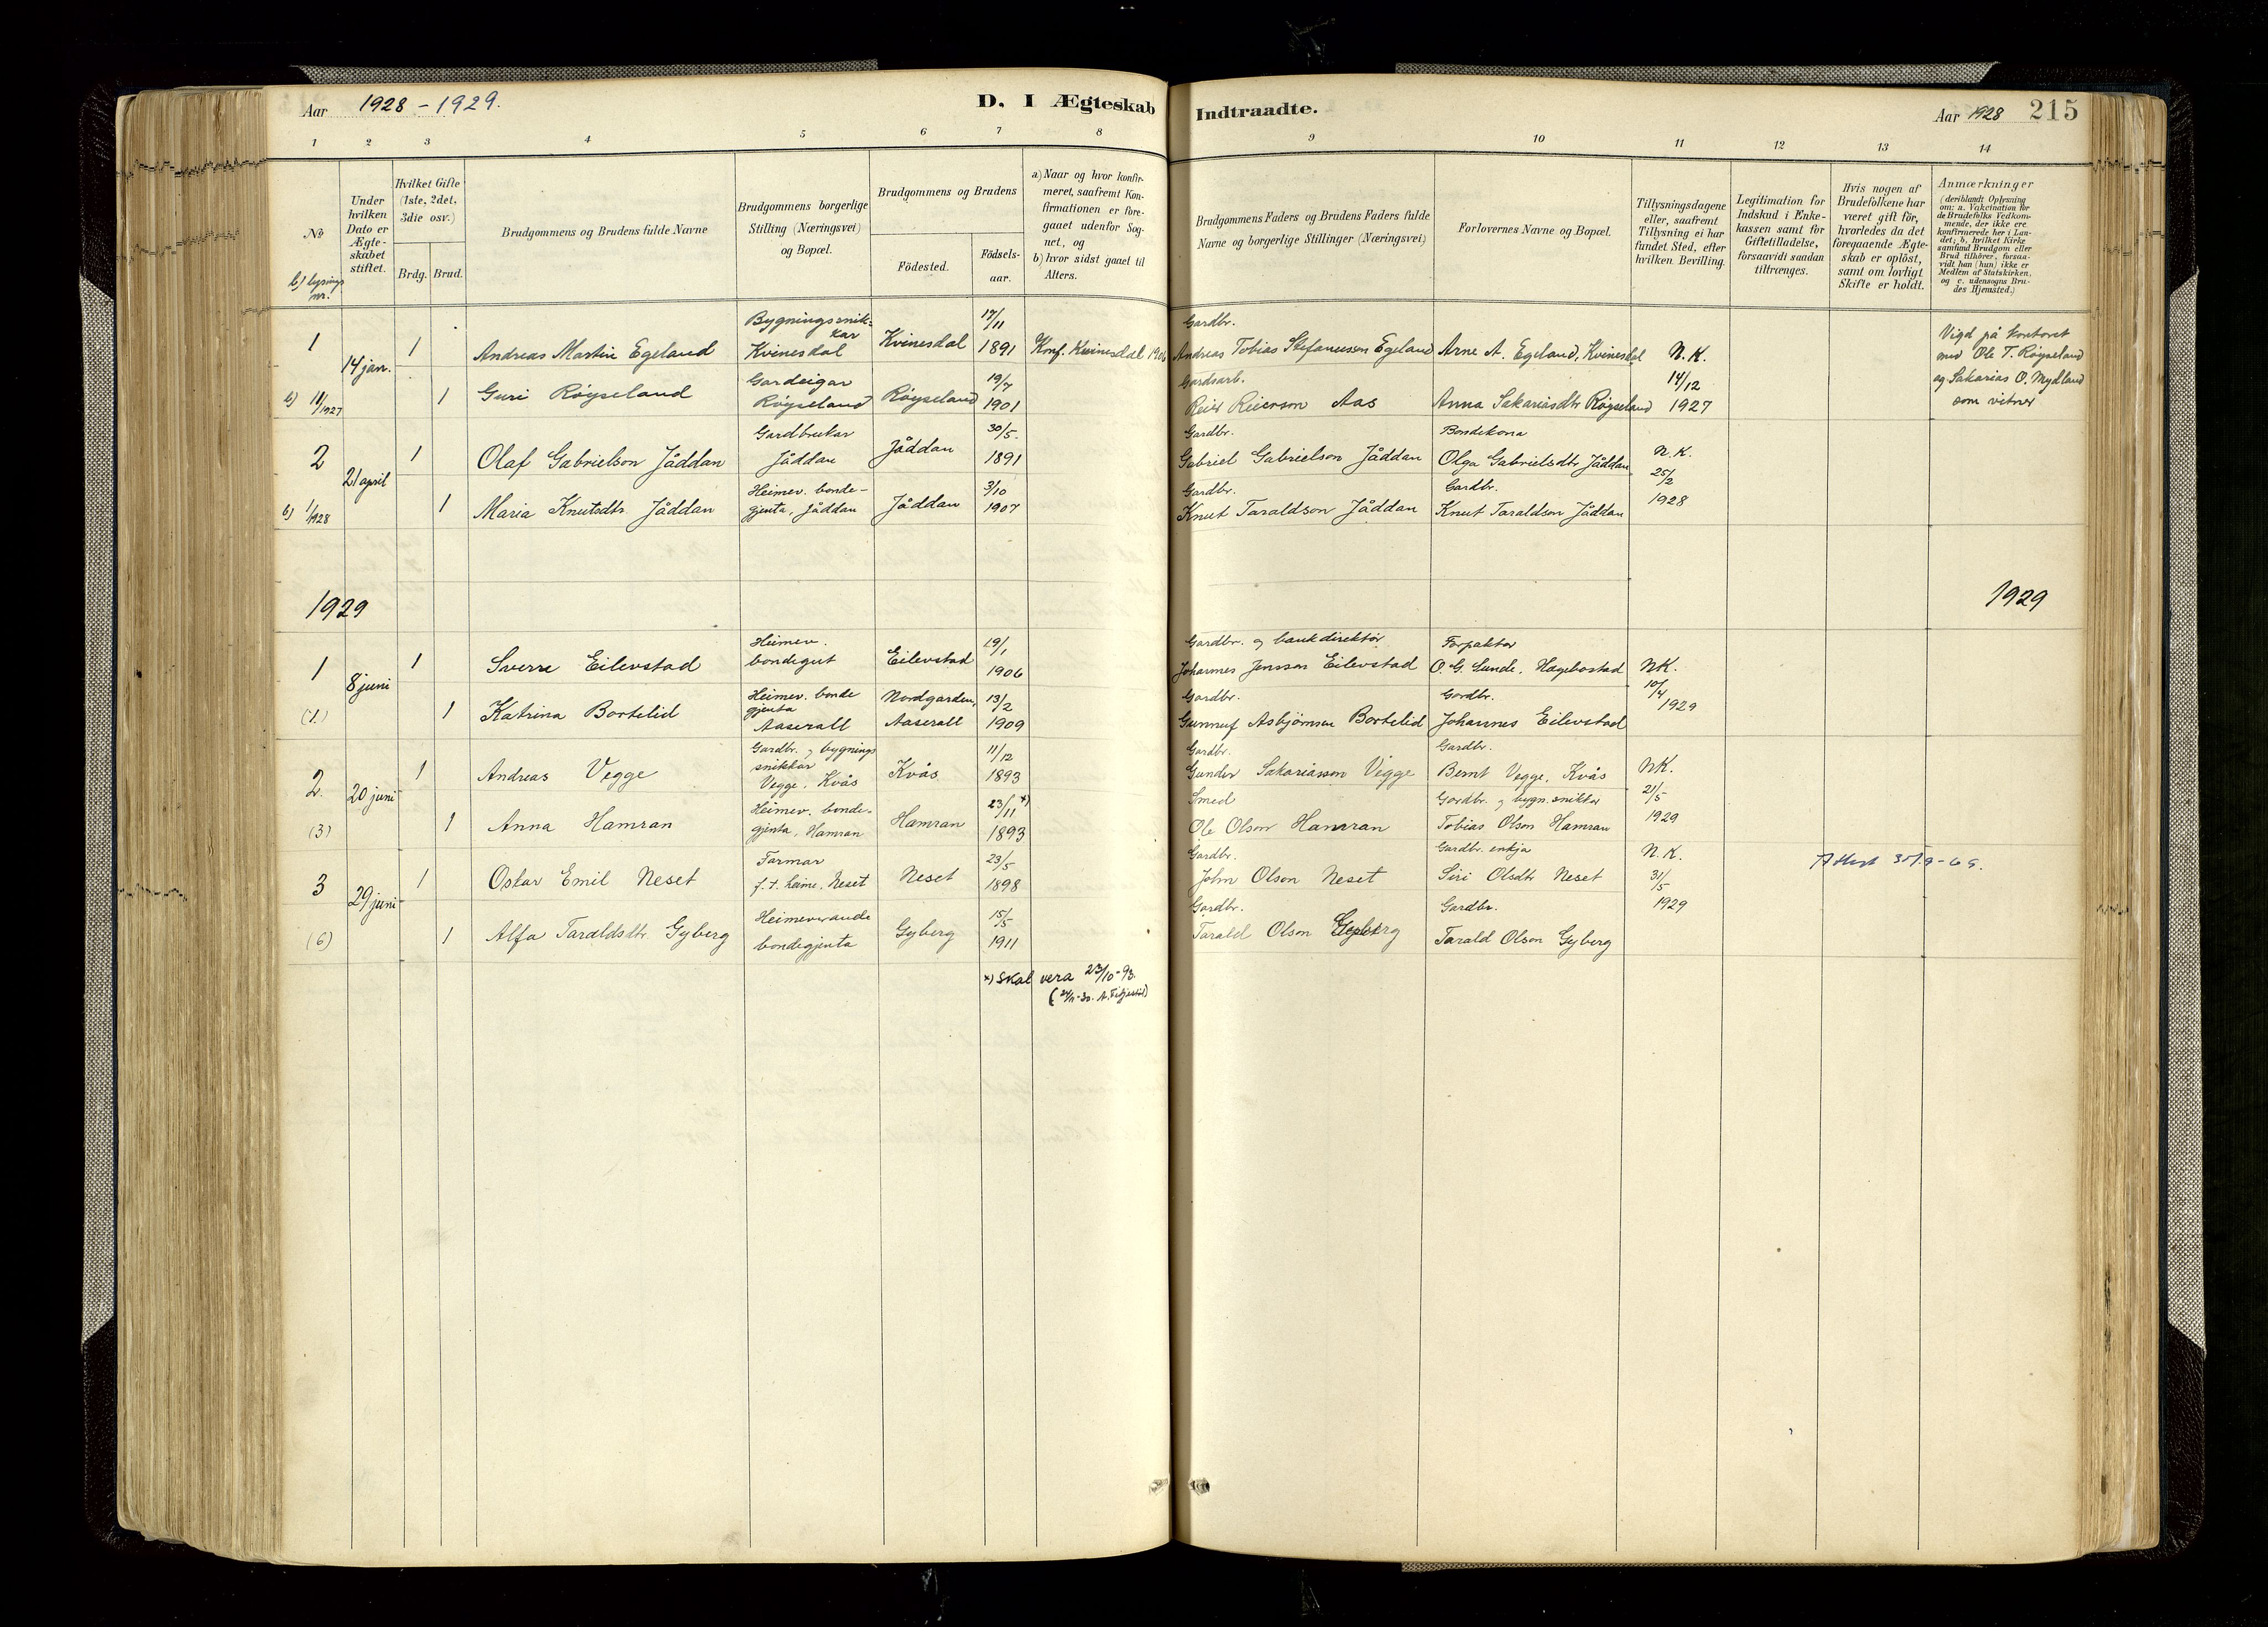 Aar 1928 - 1929.
D. I Ægteskab Indtraadte.
Aar 1928 215
1 2 3 4 5 6 7 8 9 10 11 12 13 14
No
b) lysings nr.
Under hvilken Dato er Ægteskabet stiftet.
Hvilket Gifte (1ste, 2det, 3die osv.)
Brdg. Brud.
Brudgommens og Brudens fulde Navne
Brudgommens borgerlige Stilling (Næringsvei) og Bopæl.
Brudgommens og Brudens
Födested.
Födselsaar.
a) Naar og hvor konfirmeret, saafremt Konfirmationen er foregaaet udenfor Sognet, og
b) hvor sidst gaaet til Alters.
Brudgommens Faders og Brudens Faders fulde Navne og borgerlige Stillinger (Næringsvei)
Forlovernes Navne og Bopæl.
Tillysningsdagene eller, saafremt Tillysning ei har fundet Sted, efter hvilken Bevilling.
Legitimation for Indskud i Enkekassen samt for Giftetilladelse, forsaavidt saadan tiltrænges.
Hvis nogen af Brudefolkene har været gift för, hvorledes da det foregaaende Ægteskab er oplöst, samt om lovligt Skifte er holdt.
Anmærkninger (deriblandt Oplysning om: a. Vakcination for de Brudefolks Vedkommende, der ikke ere konfirmerede her i Landet; b. hvilket Kirkesamfund Brudgom eller Brud tilhörer, forsaavidt han (hun) ikke er Medlem af Statskirken, og c. udensogns Brudes Hjemsted.)
1 14 jan. 1 Andreas Martin Egeland Bygningssnikkar Kvinesdal Kvinesdal 17/11 1891 Konf. Kvinesdal 1906 Gardbr. Andreas Tobias Stefanusson Egeland Arne A. Egeland, Kvinesdal N.K. 14/12 1927 Vigd på kontoret med Ole T. Røyseland og Sakarias O. Mydland som vitner
b) 11/1927 1 Guri Røyseland Gardeigar Røyseland Røyseland 19/7 1901 Gardsarb. Reier Reierson Aas Anna Sakariasdtr Røyseland
2 21 april 1 Olaf Gabrielson Jåddan Gardbrukar Jåddan Jåddan 30/5. 1891 Gardbr. Gabriel Gabrielson Jåddan Bondekona Olga Gabrielsdtr Jåddan N.K. 25/2 1928
b) 1/1928 1 Maria Knutsdtr Jåddan Heimev. bondegjenta, Jåddan Jåddan 3/10 1907 Gardbr. Knut Taraldson Jåddan Gardbr. Knut Taraldson Jåddan
1929 1929
1 8 juni 1 Sverre Eilevstad Heimev. bondegut Eilevstad 19/1 1906 Gardbr. og bankdirektør Johannes Jensson Eilevstad Forpaktar O. G. Sunde, Hægebostad NK. 10/4 1929
(1.) 1 Katrina Bortelid Heimev. bonde gjenta Aaserall Nordgarden, Aaserall 13/2 1909 Gardbr. Gunnuf Asbjørnson Bortelid Gardbr. Johannes Eilevstad
2. 20 juni 1 Andreas Vegge Gardbr. og bygnings snikkar Vegge, Kvås Kvås 11/12 1893 Gardbr. Gunder Sakariasson Vegge Gardbr. Bernt Vegge, Kvås NK. 21/5 1929
(3) 1 Anna Hamran Heimev. bondegjenta, Hamran Hamran 23/11 x) 1893 Smed Ole Olson Hamran Gardbr. og bygn.snikkar Tobias Olson Hamran
3 29 juni 1 Oskar Emil Neset Farmar f.t. heime. Neset Neset 23/5 1898 Gardbr. John Olson Neset Gardbr. enkja Siri Olsdtr Neset N.K. 31/5 1929
(6) 1 Alfa Taraldsdtr Gyberg Heimeverande bondegjenta Gyberg 15/5 1911 Gardbr. Tarald Olson Gyberg Gardbr. Tarald Olson Gyberg
x) Skal vera 23/10-93.